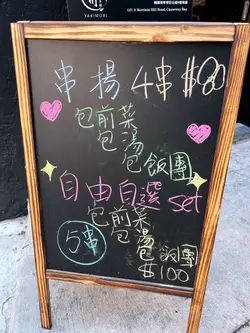 YAKIMORI
串揚 4串 $80
包前菜
包湯
包飯團
自由自選 set
包前菜
包湯
5串
包飯團
$100